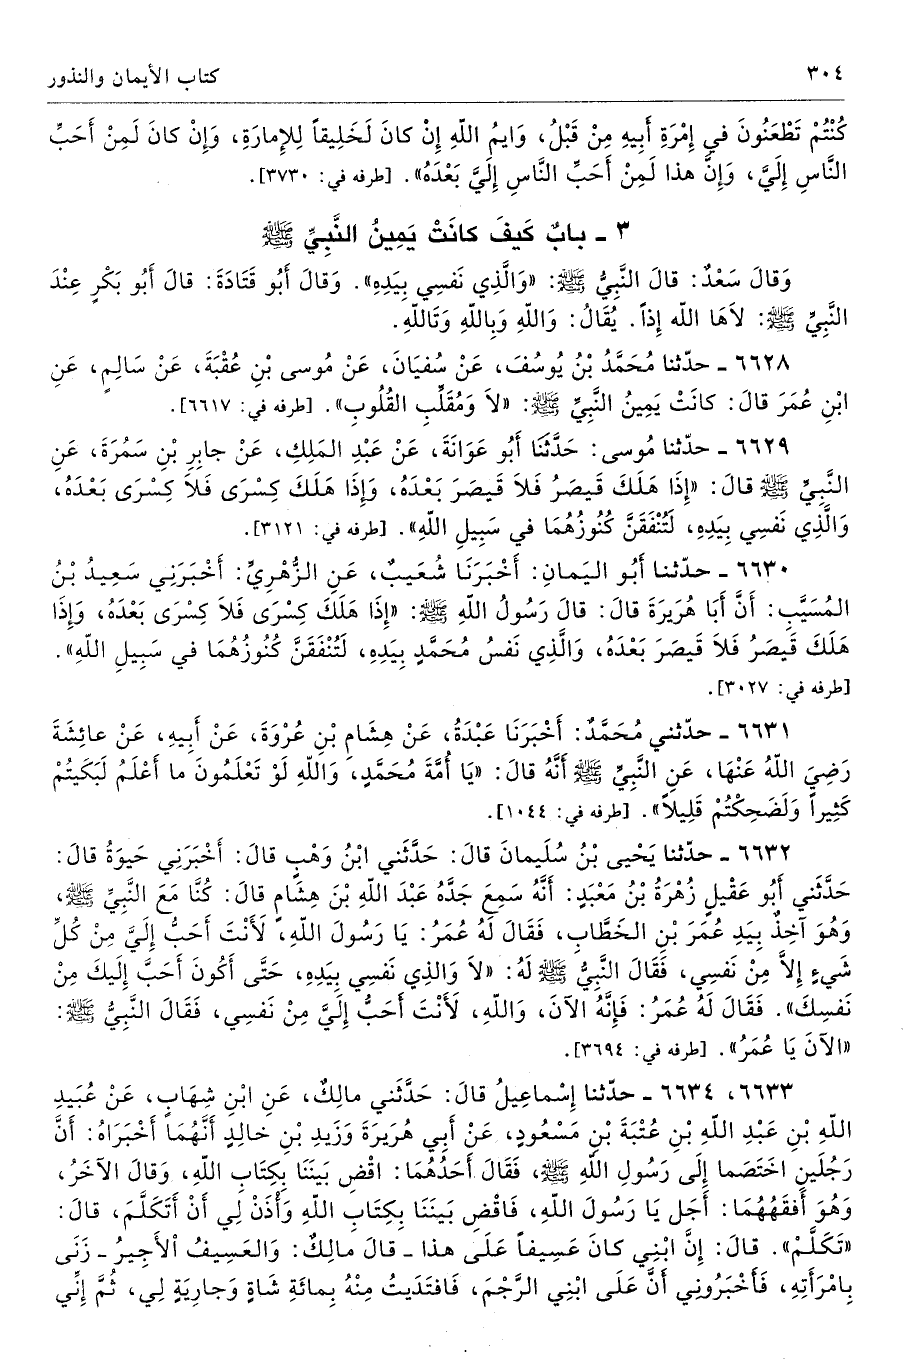 ٣٠٤ كتاب الأيمان والنذور
كُنْتُمْ تَطْعَنُونَ في إِمْرَةِ أَبِيهِ مِنْ قَبْلُ، وَايمُ اللّهِ إِنْ كانَ لَخَلِيقاً لِلإِمارَةِ، وَإِنْ كانَ لَمِنْ أَحَبِّ
النَّاسِ إِلَيَّ، وَإِنَّ هذا لَمِنْ أَحَبِّ النَّاسِ إِلَيَّ بَعْدَهُ». [طرفه في: ٣٧٣٠].
٣ ـ بابٌ كَيفَ كانَتْ يَمِينُ النَّبِيِّ ﷺ
وَقالَ سَعْدٌ: قالَ النَّبِيُّ ﷺ: «وَالَّذِي نَفسِي بِيَدِهِ». وَقالَ أَبُو قَتَادَةَ: قالَ أَبُو بَكْرٍ عِنْدَ
النَّبِيِّ ﷺ: لاَهَا اللّه إِذاً. يُقَالُ: وَاللّهِ وَبِاللّهِ وَتَاللّهِ.
٦٦٢٨ ـ حدّثنا مُحَمَّدُ بْنُ يُوسُفَ، عَنْ سُفيَانَ، عَنْ مُوسى بْنِ عُقْبَةَ، عَنْ سَالِمٍ، عَنِ
ابْنِ عُمَرَ قالَ: كانَتْ يَمِينُ النَّبِيِّ ﷺ: «لاَ وَمُقَلِّبِ القُلُوبِ». [طرفه في: ٦٦١٧].
٦٦٢٩ ـ حدّثنا مُوسى: حَدَّثَنَا أَبُو عَوَانَةَ، عَنْ عَبْدِ المَلِكِ، عَنْ جابِرِ بْنِ سَمُرَةَ، عَنِ
النَّبِيِّ ﷺ قالَ: «إِذَا هَلَكَ قَيصَرُ فَلاَ قَيصَرَ بَعْدَهُ، وَإِذَا هَلَكَ كِسْرَى فَلاَ كِسْرَى بَعْدَهُ،
وَالَّذِي نَفسِي بِيَدِهِ، لَتُنْفَقَنَّ كُنُوزُهُمَا في سَبِيلِ اللّهِ». [طرفه في: ٣١٢١].
٦٦٣٠ ـ حدّثنا أَبُو اليَمانِ: أَخْبَرَنَا شُعَيبٌ، عَنِ الزُّهْرِيِّ: أَخْبَرَنِي سَعِيدُ بْنُ
المُسَيَّبِ: أَنَّ أَبَا هُرَيرَةَ قالَ: قالَ رَسُولُ اللّهِ ﷺ: «إِذَا هَلَكَ كِسْرَى فَلاَ كِسْرَى بَعْدَهُ، وَإِذَا
هَلَكَ قَيصَرُ فَلاَ قَيصَرَ بَعْدَهُ، وَالَّذِي نَفسُ مُحَمَّدٍ بِيَدِهِ، لَتُنْفَقَنَّ كُنُوزُهُمَا في سَبِيلِ اللّهِ».
[طرفه في: ٣٠٢٧].
٦٦٣١ ـ حدّثني مُحَمَّدٌ: أَخْبَرَنَا عَبْدَةُ، عَنْ هِشَامِ بْنِ عُرْوَةَ، عَنْ أَبِيهِ، عَنْ عائِشَةَ
رَضِيَ اللّهُ عَنْهَا، عَنِ النَّبِيِّ ﷺ أَنَّهُ قالَ: «يَا أُمَّةَ مُحَمَّدٍ، وَاللّهِ لَوْ تَعْلَمُونَ ما أَعْلَمُ لَبَكَيتُمْ
كَثِيراً وَلَضَحِكْتُمْ قَلِيلاً». [طرفه في: ١٠٤٤].
٦٦٣٢ ـ حدّثنا يَحْيى بْنُ سُلَيمانَ قالَ: حَدَّثَني ابْنُ وَهْبٍ قالَ: أَخْبَرَنِي حَيوَةُ قالَ:
حَدَّثَني أَبُو عَقِيلٍ زُهْرَةُ بْنُ مَعْبَدٍ: أَنَّهُ سَمِعَ جَدَّهُ عَبْدَ اللّهِ بْنَ هِشَامٍ قالَ: كُنَّا مَعَ النَّبِيِّ ﷺ،
وَهُوَ آخِذٌ بِيَدِ عُمَرَ بْنِ الخَطَّابِ، فَقَالَ لَهُ عُمَرُ: يَا رَسُولَ اللّهِ، لَأَنْتَ أَحَبُّ إِلَيَّ مِنْ كُلِّ
شَيءٍ إِلاَّ مِنْ نَفسِي، فَقَالَ النَّبِيُّ ﷺ لَهُ: «لاَ وَالذِي نَفسِي بِيَدِهِ، حَتَّى أَكُونَ أَحَبَّ إِلَيكَ مِنْ
نَفسِكَ». فَقَالَ لَهُ عُمَرُ: فَإِنَّهُ الآنَ، وَاللّهِ، لَأَنْتَ أَحَبُّ إِلَيَّ مِنْ نَفسِي، فَقَالَ النَّبِيُّ ﷺ:
«الآنَ يَا عُمَرُ». [طرفه في: ٣٦٩٤].
٦٦٣٣، ٦٦٣٤ ـ حدّثنا إِسْماعِيلُ قالَ: حَدَّثَني مالِكٌ، عَنِ ابْنِ شِهَابٍ، عَنْ عُبَيدِ
اللّهِ بْنِ عَبْدِ اللّهِ بْنِ عُتْبَةَ بْنِ مَسْعُودٍ، عَنْ أَبِي هُرَيرَةَ وَزَيدِ بْنِ خالِدٍ أَنَّهُمَا أَخْبَرَاهُ: أَنَّ
رَجُلَينِ اخْتَصَما إِلَى رَسُولِ اللّهِ ﷺ، فَقَالَ أَحَدُهُمَا: اقْضِ بَينَنَا بِكِتَابِ اللّهِ، وَقالَ الآخَرُ،
وَهُوَ أَفقَهُهُمَا: أَجَل يَا رَسُولَ اللّهِ، فَاقْضِ بَينَنَا بِكِتَابِ اللّهِ وَأْذَنْ لِي أَنْ أَتَكَلَّمَ، قالَ:
«تَكَلَّمْ». قالَ: إِنَّ ابْنِي كانَ عَسِيفاً عَلَى هذا ـ قالَ مالِكٌ: وَالعَسِيفُ الأَجِيرُ ـ زَنَى
بِامْرَأَتِهِ، فَأَخْبَرُونِي أَنَّ عَلَى ابْنِي الرَّجْمَ، فَافتَدَيتُ مِنْهُ بِمائَةِ شَاةٍ وَجارِيَةٍ لِي، ثُمَّ إِنِّي